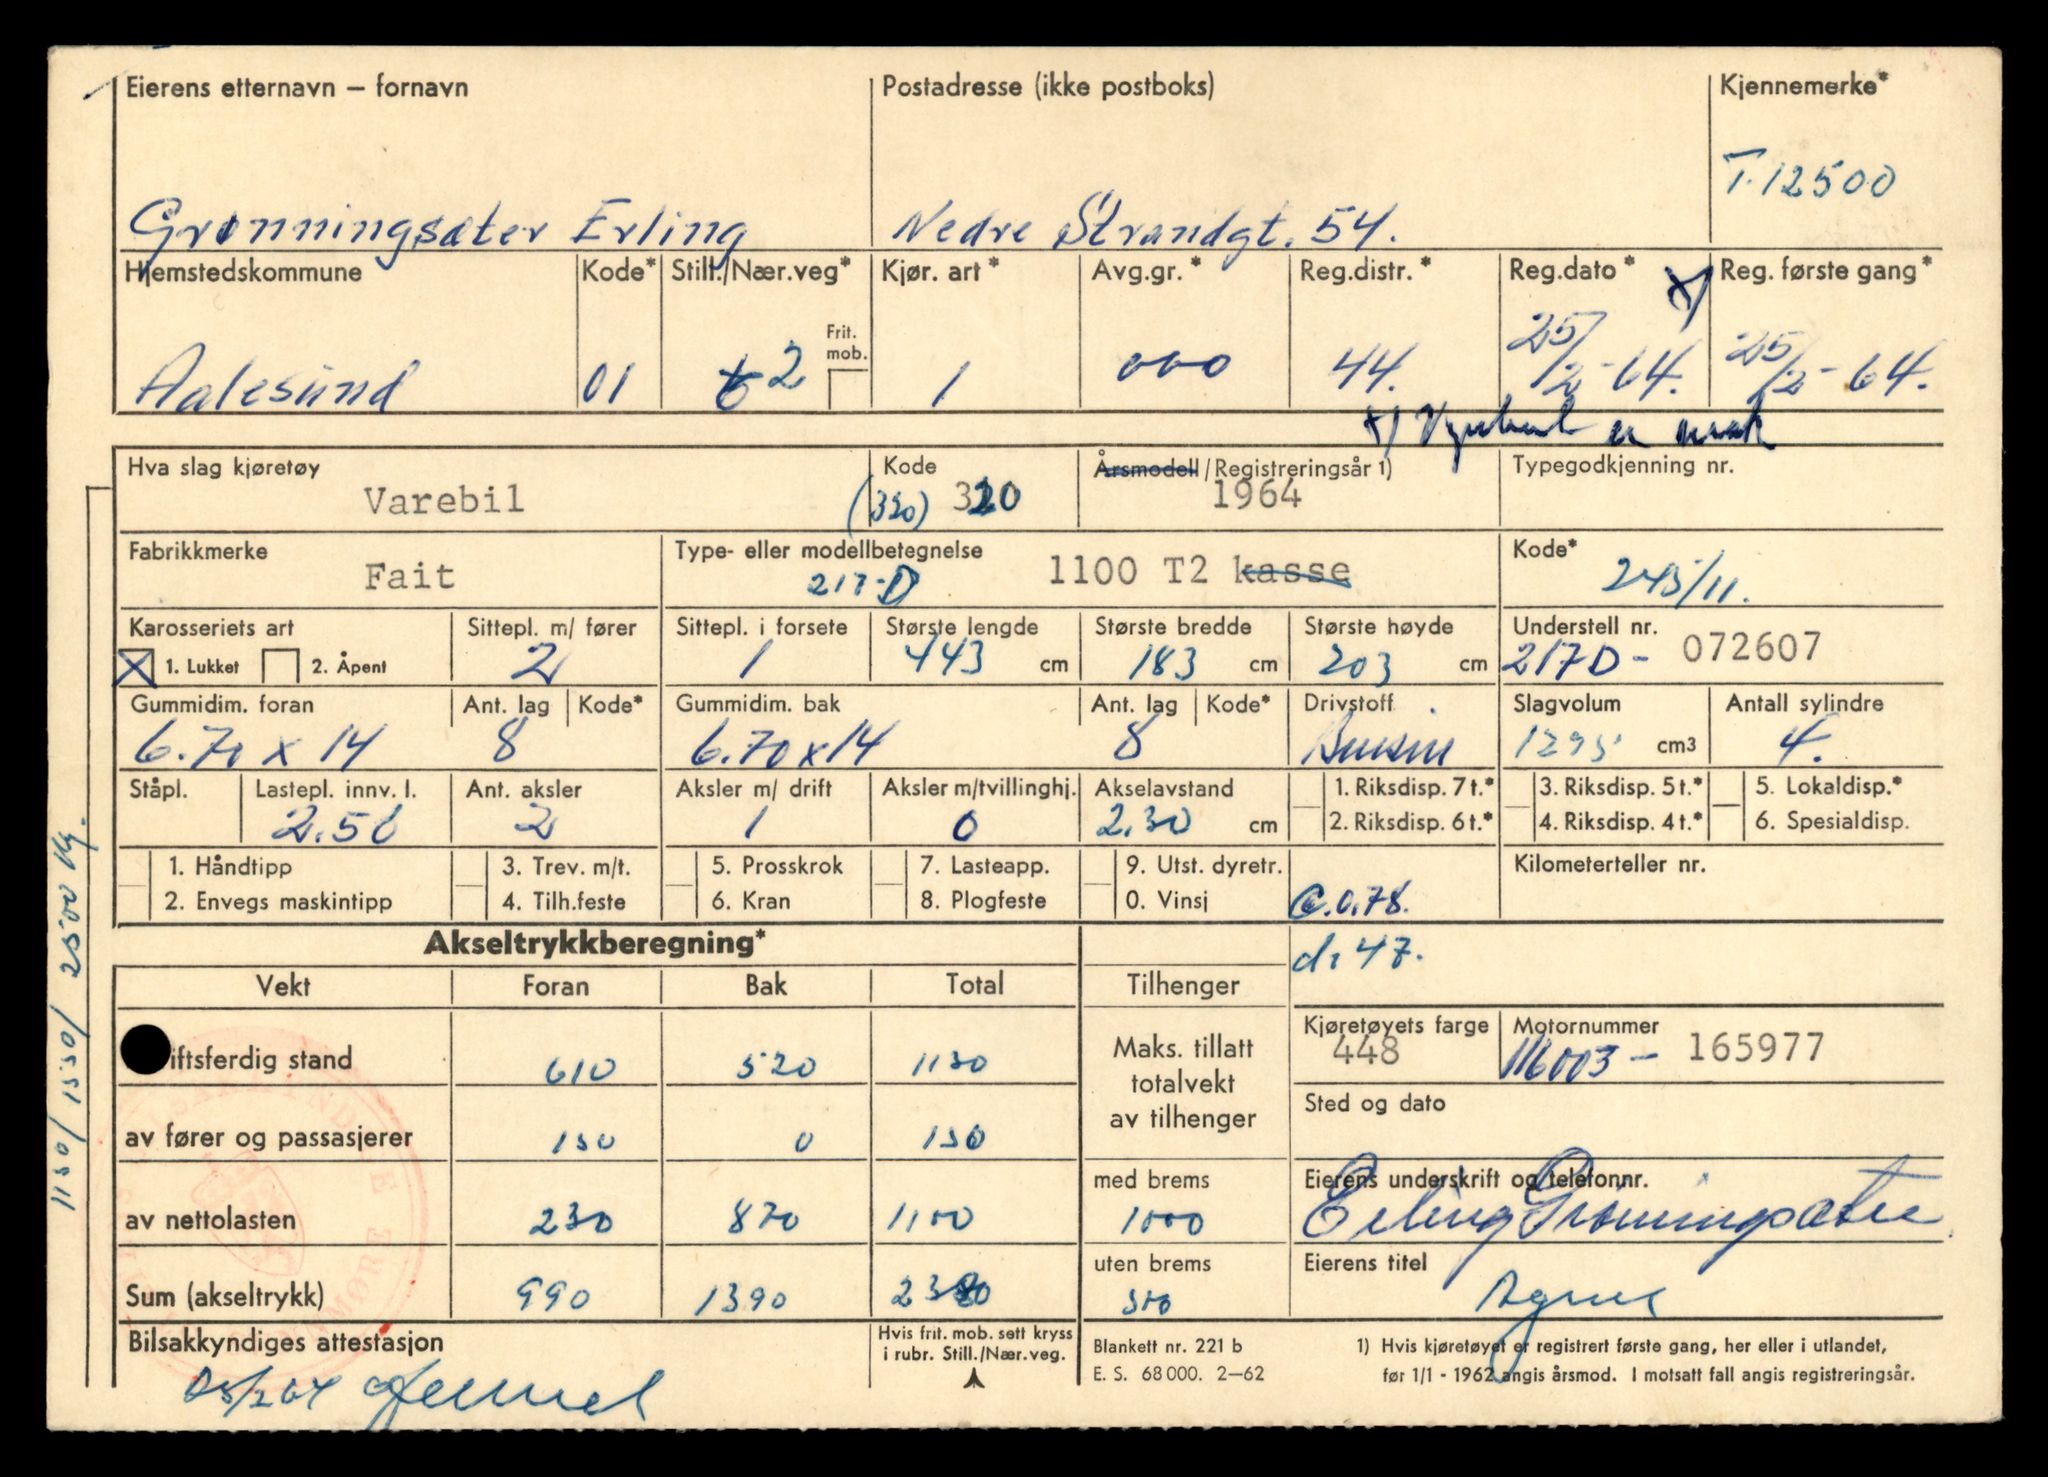 Eierens etternavn – fornavn Postadresse (ikke postboks) Kjennemerke*
T.12500
Grønningsæter Erling Nedre Strandgt. 54.
Hjemstedskommune Kode* Still./Nær.veg* Kjør. art* Avg.gr.* Reg.distr.* Reg.dato* x) Reg. første gang*
Frit. mob.
Aalesund 01 2 1 000 44. 25/2-64. 25/2-64.
Hva slag kjøretøy Kode Årsmodell/Registreringsår 1) Typegodkjenning nr.
Varebil (320) 320 1964
Fabrikkmerke Type- eller modellbetegnelse Kode*
Fait 217-D 1100 T2 kasse 245/11.
Karosseriets art Sittepl. m/ fører Sittepl. i forsete Største lengde Største bredde Største høyde Understell nr.
X 1. Lukket 2. Åpent 2 1 443 cm 183 cm 203 cm 217D- 072607
Gummidim. foran Ant. lag Kode* Gummidim. bak Ant. lag Kode* Drivstoff Slagvolum Antall sylindre
6.70 x 14 8 6.70 x 14 8 Bensin 1295 cm3 4.
Ståpl. Lastepl. innv. l. Ant. aksler Aksler m/ drift Aksler m/tvillinghj. Akselavstand 1. Riksdisp. 7 t.* 3. Riksdisp. 5 t.* 5. Lokaldisp.*
2.50 2 1 0 2.30 cm 2. Riksdisp. 6 t.* 4. Riksdisp. 4 t.* 6. Spesialdisp.
1. Håndtipp 3. Trev. m/t. 5. Prosskrok 7. Lasteapp. 9. Utst. dyretr. Kilometerteller nr.
2. Envegs maskintipp 4. Tilh.feste 6. Kran 8. Plogfeste 0. Vinsj C.0.78.
Akseltrykkberegning* d. 47.
Vekt Foran Bak Total Tilhenger
Kjøretøyets farge Motornummer
iftsferdig stand 610 520 1130 Maks. tillatt totalvekt av tilhenger 448 116003- 165977
Sted og dato
av fører og passasjerer 150 0 150
med brems Eierens underskrift og telefonnr.
av nettolasten 230 870 1100 1000 Erling Grønningsæter
uten brems Eierens titel
Sum (akseltrykk) 990 1390 2380 500 Agent
Bilsakkyndiges attestasjon Hvis frit. mob. sett kryss i rubr. Still./Nær.veg. Blankett nr. 221 b 1) Hvis kjøretøyet er registrert første gang, her eller i utlandet,
E. S. 68 000. 2–62 før 1/1 - 1962 angis årsmod. I motsatt fall angis registreringsår.
25/2 64
1150/1550/2500 kg.